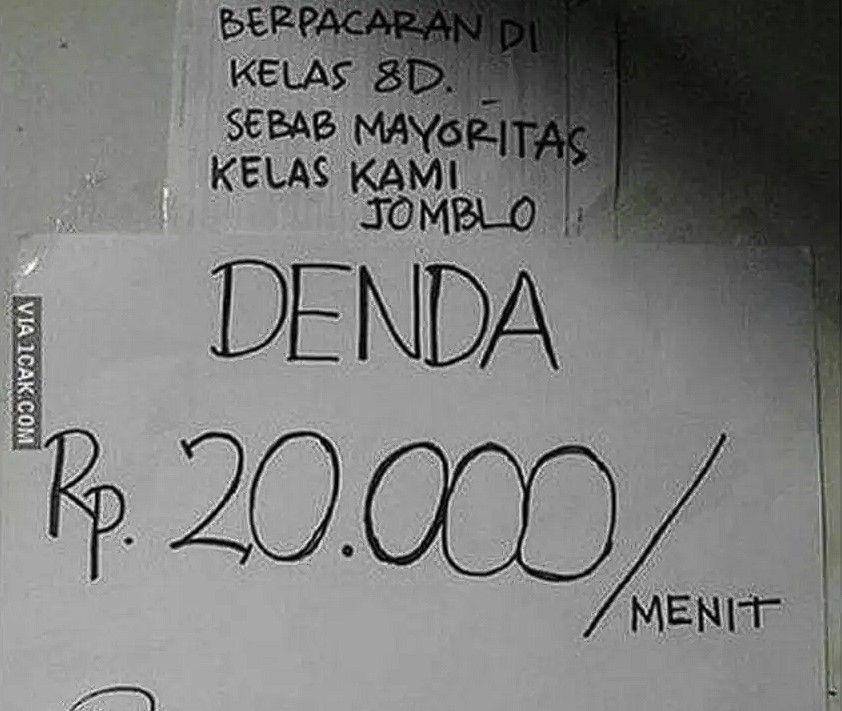 BERPACARAN DI
KELAS 8D.
SEBAB MAYORITAS
KELAS KAMI
JOMBLO
DENDA
Rp. 20.000/
MENIT
VIA 1CAK.COM